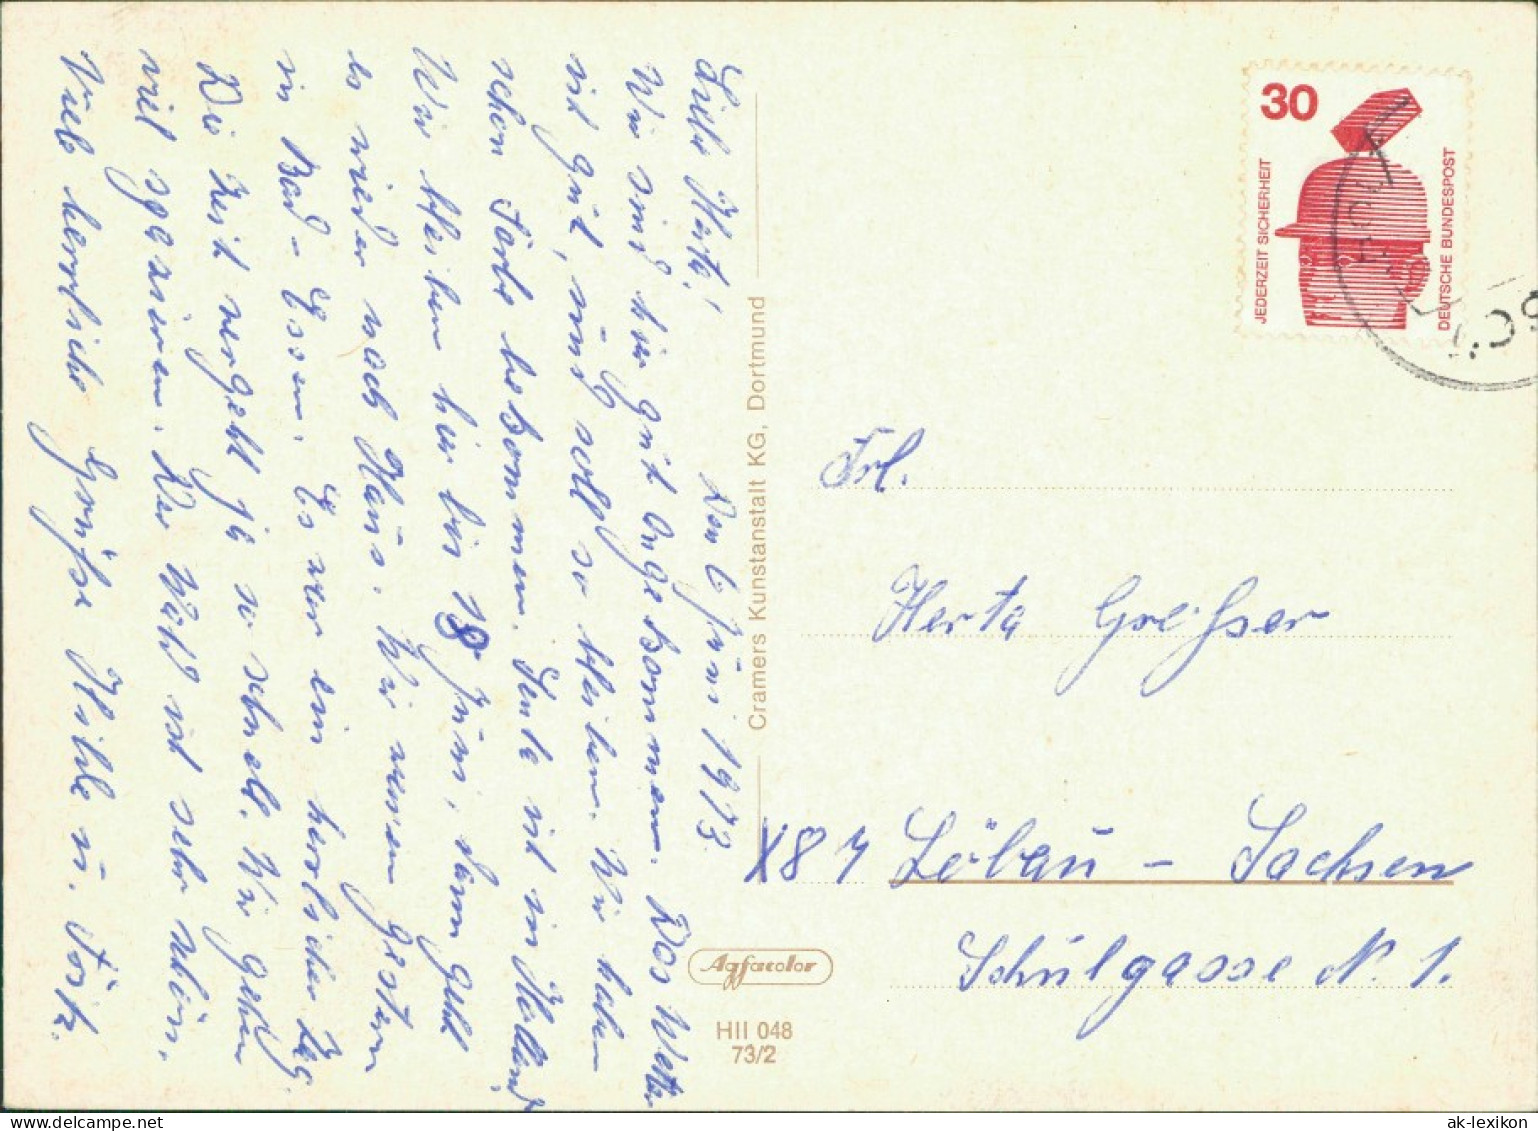 Den 6 Juni 1973.
Liebe Herta!
Wir sind hier gut angekommen. Das Wetter
ist gut, und soll so bleiben. Wir haben
schon Farbe bekommen. Heute ist in
Wir bleiben hier bis 18 Juni, dann geht
es wieder nach Haus. Wir waren gestern
in Bad-Essen. Es war ein herrlicher Tag.
Die Zeit vergeht ja so schnell. Wir gehen
viel spazieren. Der Wald ist sehr schön.
Viele herzliche Grüße Hilde u.
Cramers Kunstanstalt KG, Dortmund
Agfacolor
HII 048
73/2
30
JEDERZEIT SICHERHEIT
DEUTSCHE BUNDESPOST
Frl.
Herta Greifser
X87 Löbau – Sachsen
Schulgasse N. 1.
ak-lexikon